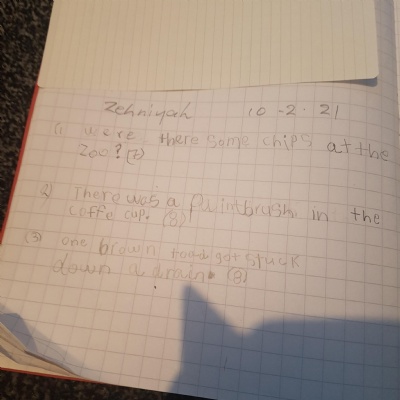 Zehniyah 10-2-21
(1) were there some chips at the
zoo? (7)
2) There was a paintbrush in the
coffe cup. (8)
(3) one brown toad got stuck
down a drain. (8)